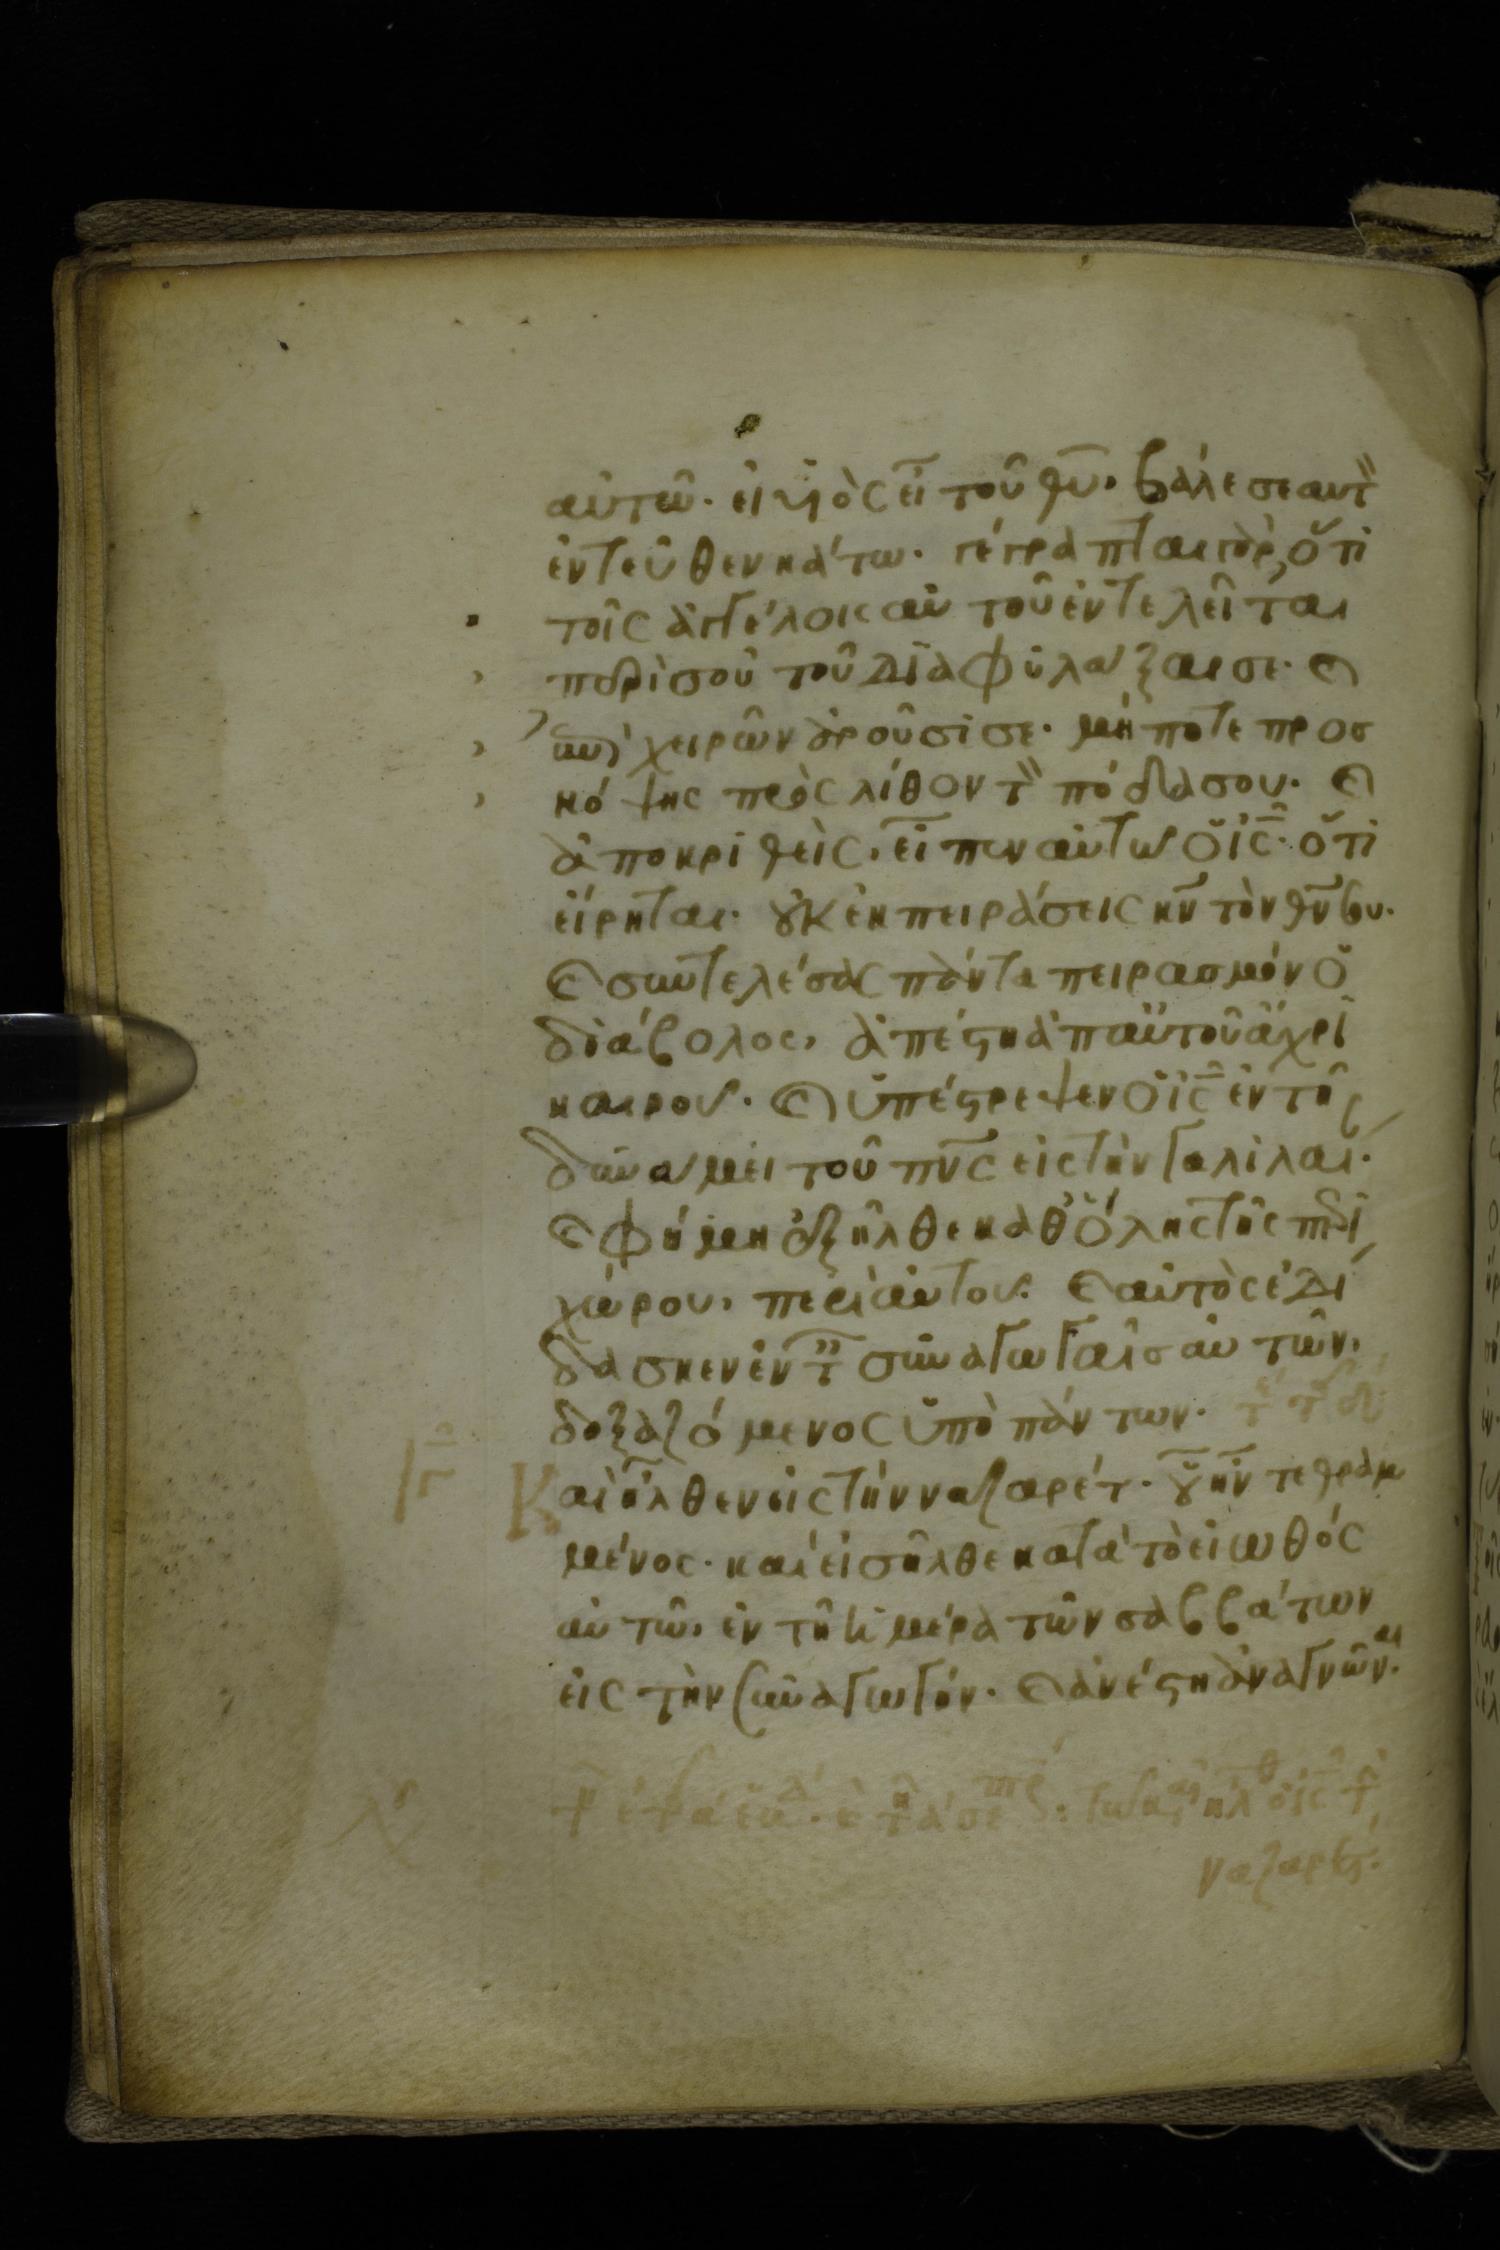 αὐτῶ· εἰ υἱὸς εἶ τοῦ θυ, βάλε σεαυτ
ἐντεῦθεν κάτω· γέγραπται γὰρ, ὅτι
τοῖς ἀγγέλοις αὐτοῦ ἐντελεῖται
περὶ σοῦ τοῦ διαφυλάξαι σε· ϗ
ἐπὶ χειρῶν ἀροῦσί σε· μήποτε προσ
κόψης πρὸς λίθον τ πόδα σου· ϗ
ἀποκριθεὶς, εἶπεν αὐτῶ ὁ ις· ὅτι
εἴρηται· οὐκ ἐκπειράσεις κν τὸν θν σου·
ϗ συντελέσας πάντα πειρασμὸν ὁ
διάβολος, ἀπέστη ἀπ αὐτοῦ ἄχρι
καιροῦ· ϗ ὑπέστρεψεν ὁ ις ἐν τῆ
δυνάμει τοῦ πνς εἰς τὴν γαλιλαι·
ϗ φήμη ἐξῆλθε καθ ὅλης τῆς περι
χώρου, περὶ αὐτοῦ· ϗ αὐτὸς ἐδί
δασκεν ἐν τ συναγωγαῖς αὐτῶν,
δοξαζόμενος ὑπὸ πάντων·
Καὶ ἦλθεν εἰς τὴν ναζαρέτ· οὗ ἦν τεθραμ
μένος· καὶ εἰσῆλθε κατὰ τὸ εἰωθὸς
αὐτῶ, ἐν τῆ ἡμέρα τῶν σαββάτων
εἰς τὴν συναγωγήν· ϗ ἀνέστη ἀναγνῶναι·
ναζαρετ·